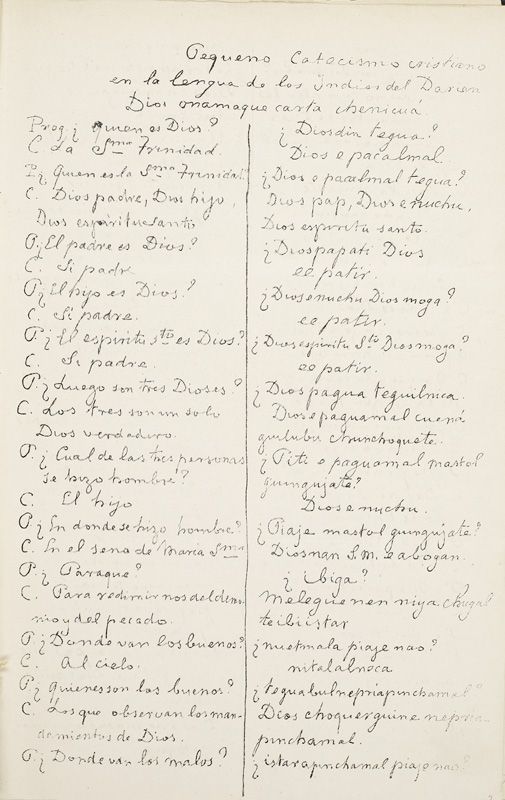 Pequeno Catecismo cristiano
en la lengua de los Yndios del Darien
Dios onamaque carta chenicuá.
Preg. ¿ quien es Dios?
C. La Sma Trinidad.
P. ¿ Quen es la Sma Trinidad?
C. Dios padre, Dios hijo,
Dios espiritu santo
P. ¿ El padre es Dios?
C. Si padre
P. ¿ El hijo es Dios?
C. Si padre.
P. ¿ El espiritu sto es Dios?
C. Si padre.
P. ¿ Luego son tres Dioses?
C. Los tres son un solo
Dios verdadero.
P. ¿ Cual de las tres personas
se hizo hombre?
C. El hijo
P. ¿ En donde se hizo hombre?
C. En el seno de Maria Sma
P. ¿ Paraque?
C. Para redimirnos del demo-
nio y del pecado.
P. ¿ Donde van los buenos?
C. Al cielo.
P. ¿ quienes son los buenos?
C. Los que observan los man-
damientos de Dios.
P. ¿ Donde van los malos?
¿ Diosdin tegua?
Dios e pacalmal.
¿ Dios e pacalmal tegua?
Dios pap, Dios e nuchu,
Dios espiritu santo.
¿ Dios papati Dios
ee patir.
¿ Dios e nuchu Dios moga?
ee patir.
¿ Dios espiritu Sto Dios moga?
ee patir.
¿ Dios pagua teguilnica.
Dios e paguamal cuená
guilubu chunchoquete.
¿ Piti e paguamal mastol
gunguijate?
Dios e nuchu.
¿ Piaje mastol gungujate?
Diosnan S.M. e abogan.
¿ ibiga?
Meleguenen niya chugal
teibi istar
¿ nuetmala piaje nao?
nitalalneca
¿ tegua bulnepriapinchamal?
Dios choquerguine nepria
pinchamal.
¿ istarapinchamal piaje nao?